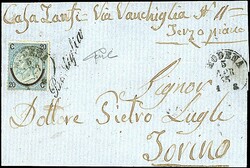 Casa Zanti Via Vanchiglia N 11
Terzo piano
C 20
Bastiglia
MODENA
Signor
Dottore Pietro Lugli
Torino